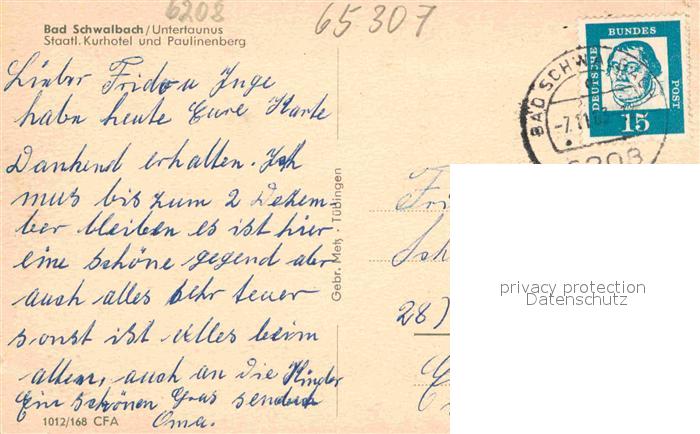 6208
65307
Bad Schwalbach/Untertaunus
Staatl. Kurhotel und Paulinenberg
Lieber Frido u Inge
habe heute Eure Karte
Dankend erhalten. Ich
mus bis zum 2 Dezem
ber bleiben es ist hier
eine schöne gegend aber
auch alles sehr teuer
sonst ist alles beim
alten, auch an die Kinder
Ein schönen Grus sendet
Oma.
1012/168 CFA
Gebr. Metz · Tübingen
BAD SCHWAL
-7.11.63
6208
DEUTSCHE
BUNDES
POST
15
Fri
Sch
287
privacy protection
Datenschutz